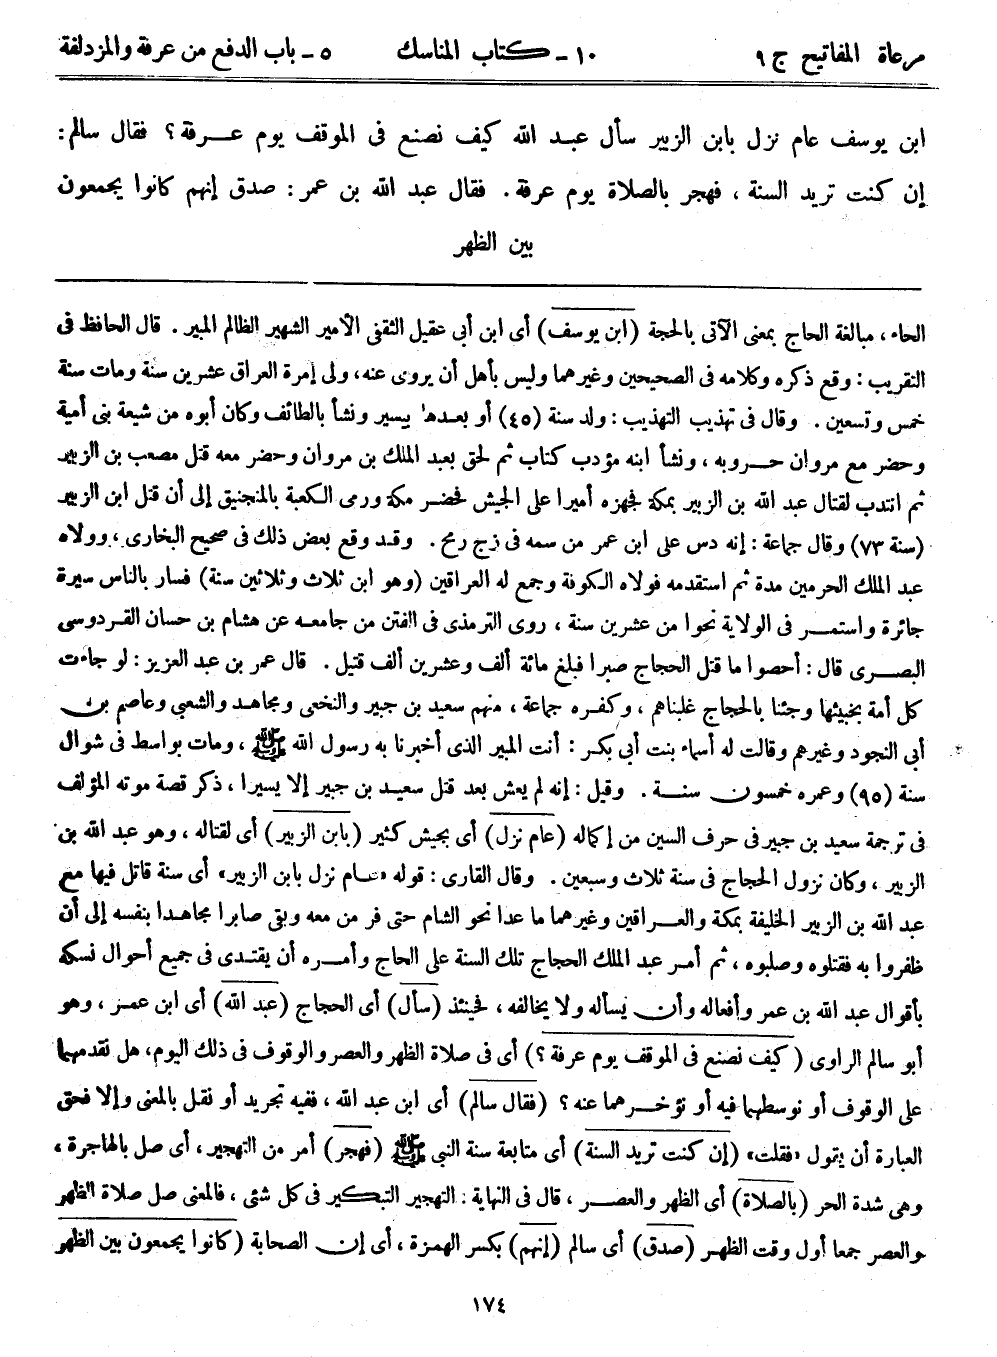 مرعاة المفاتيح ج ٩ ١٠ - كتاب المناسك ٥ - باب الدفع من عرفة والمزدلفة
ابن يوسف عام نزل بابن الزبير سأل عبد الله كيف نصنع فى الموقف يوم عرفة؟ فقال سالم:
إن كنت تريد السنة، فهجر بالصلاة يوم عرفة. فقال عبد الله بن عمر: صدق إنهم كانوا يجمعون
بين الظهر
الحاء، مبالغة الحاج بمعنى الآتى بالحجة (ابن يوسف) أى ابن أبى عقيل الثقفى الأمير الشهير الظالم المبير. قال الحافظ فى
التقريب: وقع ذكره وكلامه فى الصحيحين وغيرهما وليس بأهل أن يروى عنه، ولى إمرة العراق عشرين سنة ومات سنة
خمس وتسعين. وقال فى تهذيب التهذيب: ولد سنة (٤٥) أو بعدها بيسير ونشأ بالطائف وكان أبوه من شيعة بنى أمية
وحضر مع مروان حروبه، ونشأ ابنه مؤدب كتاب ثم لحق بعبد الملك بن مروان وحضر معه قتل مصعب بن الزبير
ثم انتدب لقتال عبد الله بن الزبير بمكة فجهزه أميرا على الجيش فحضر مكة ورمى الكعبة بالمنجنيق إلى أن قتل ابن الزبير
(سنة ٧٣) وقال جماعة: إنه دس على ابن عمر من سمه فى زج رمح. وقد وقع بعض ذلك فى صحيح البخارى، وولاه
عبد الملك الحرمين مدة ثم استقدمه فولاه الكوفة وجمع له العراقين (وهو ابن ثلاث وثلاثين سنة) فسار بالناس سيرة
جائرة واستمر فى الولاية نحوا من عشرين سنة، روى الترمذى فى الفتن من جامعه عن هشام بن حسان القردوسى
البصرى قال: أحصوا ما قتل الحجاج صبرا فبلغ مائة ألف وعشرين ألف قتيل. قال عمر بن عبد العزيز: لو جاءت
كل أمة بخبيثها وجئنا بالحجاج غلبناهم، وكفره جماعة، منهم سعيد بن جبير والنخعى ومجاهد والشعبى وعاصم بن
أبى النجود وغيرهم وقالت له أسماء بنت أبى بكر: أنت المبير الذى أخبرنا به رسول الله ﷺ، ومات بواسط فى شوال
سنة (٩٥) وعمره خمسون سنة. وقيل: إنه لم يعش بعد قتل سعيد بن جبير إلا يسيرا، ذكر قصة موته المؤلف
فى ترجمة سعيد بن جبير فى حرف السين من إكماله (عام نزل) أى بجيش كثير (بابن الزبير) أى لقتاله، وهو عبد الله بن
الزبير، وكان نزول الحجاج فى سنة ثلاث وسبعين. وقال القارى: قوله «عام نزل بابن الزبير» أى سنة قاتل فيها مع
عبد الله بن الزبير الخليفة بمكة والعراقين وغيرهما ما عدا نحو الشام حتى فر من معه وبقى صابرا مجاهدا بنفسه إلى أن
ظفروا به فقتلوه وصلبوه، ثم أمر عبد الملك الحجاج تلك السنة على الحاج وأمره أن يقتدى فى جميع أحوال نسكه
بأقوال عبد الله بن عمر وأفعاله وأن يسأله ولا يخالفه، فحينئذ (سأل) أى الحجاج (عبد الله) أى ابن عمر، وهو
أبو سالم الراوى (كيف نصنع فى الموقف يوم عرفة؟) أى فى صلاة الظهر والعصر والوقوف فى ذلك اليوم، هل نقدمهما
على الوقوف أو نوسطهما فيه أو نؤخرهما عنه؟ (فقال سالم) أى ابن عبد الله، ففيه تجريد أو نقل بالمعنى وإلا فحق
العبارة أن يقول «فقلت» (إن كنت تريد السنة) أى متابعة سنة النبى ﷺ (فهجر) أمر من التهجير، أى صل بالهاجرة،
وهى شدة الحر (بالصلاة) أى الظهر والعصر، قال فى النهاية: التهجير التبكير فى كل شئى، فالمعنى صل صلاة الظهر
والعصر جمعا أول وقت الظهر (صدق) أى سالم (إنهم) بكسر الهمزة، أى إن الصحابة (كانوا يجمعون بين الظهر
١٧٤